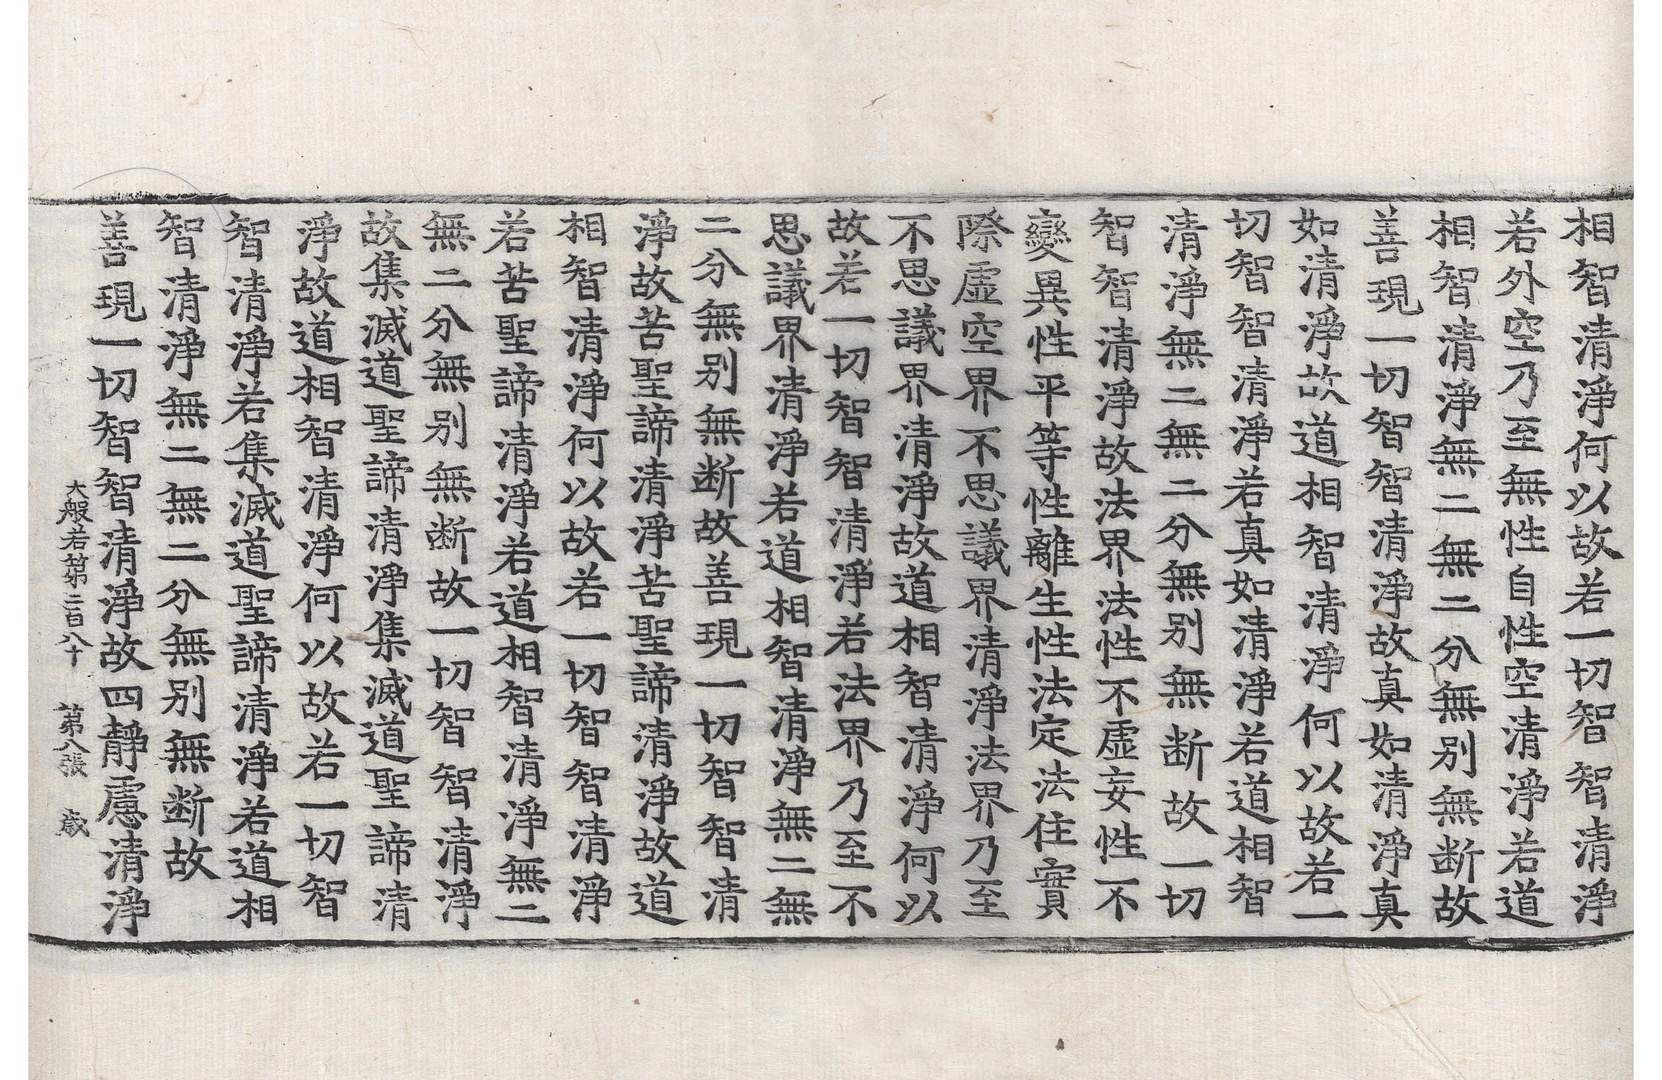 相智清淨何以故若一切智智清淨
若外空乃至無性自性空清淨若道
相智清淨無二無二分無別無断故
善現一切智智清淨故真如清淨真
如清淨故道相智清淨何以故若一
切智智清淨若真如清淨若道相智
清淨無二無二分無別無断故一切
智智清淨故法界法性不虛妄性不
變異性平等性離生性法定法住實
際虛空界不思議界清淨法界乃至
不思議界清淨故道相智清淨何以
故若一切智智清淨若法界乃至不
思議界清淨若道相智清淨無二無
二分無別無断故善現一切智智清
淨故苦聖諦清淨苦聖諦清淨故道
相智清淨何以故若一切智智清淨
若苦聖諦清淨若道相智清淨無二
無二分無別無断故一切智智清淨
故集滅道聖諦清淨集滅道聖諦清
淨故道相智清淨何以故若一切智
智清淨若集滅道聖諦清淨若道相
智清淨無二無二分無別無断故
善現一切智智清淨故四靜慮清淨
大般若第二百八十　第八張　歳